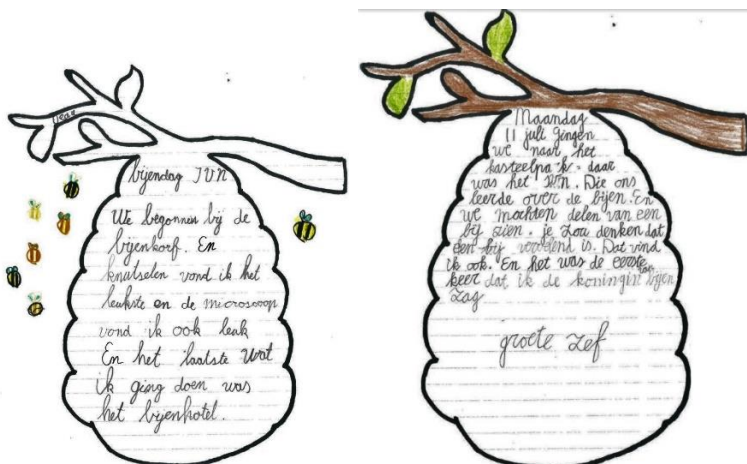 bijendag IVN
We begonnen bij de
bijenkorf. En
knutselen vond ik het
leukste en de microscoop
vond ik ook leak
En het laatste wat
ik ging doen was
het bijenhotel.
Maandag
11 juli gingen
we naar het
kasteelpark daar
was het IVN. Die ons
leerde over de bijen. En
we mochten delen van een
bij zien. je zou denken dat
een bij vervelend is. Dat vind
ik ook. En het was de eerste
keer dat ik de koningin bijen
zag
groete zef